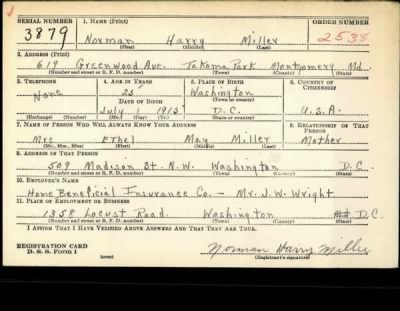 SERIAL NUMBER 1. NAME (Print) ORDER NUMBER
3879 Norman Harry Miller 2538
(First) (Middle) (Last)
2. ADDRESS (Print)
619 Greenwood Ave. Takoma Park Montgomery Md.
(Number and street or R. F. D. number) (Town) (County) (State)
3. TELEPHONE 4. AGE IN YEARS 5. PLACE OF BIRTH 6. COUNTRY OF CITIZENSHIP
None Washington
DATE OF BIRTH (Town or county)
July 1 D.C. U.S.A.
(Exchange) (Number) (Mo.) (Day) (Yr.) (State or country)
7. NAME OF PERSON WHO WILL ALWAYS KNOW YOUR ADDRESS 8. RELATIONSHIP OF THAT PERSON
Mrs Ethel May Miller Mother
(Mr., Mrs., Miss) (First) (Middle) (Last)
9. ADDRESS OF THAT PERSON
509 Madison St. N.W. Washington D.C.
(Number and street or R. F. D. number) (Town) (County) (State)
10. EMPLOYER'S NAME
Home Beneficial Insurance Co. - Mr. J.W. Wright
11. PLACE OF EMPLOYMENT OR BUSINESS
1358 Locust Road. Washington D.C.
(Number and street or R. F. D. number) (Town) (County) (State)
I AFFIRM THAT I HAVE VERIFIED ABOVE ANSWERS AND THAT THEY ARE TRUE.
REGISTRATION CARD
D. S. S. Form 1 (over) Norman Harry Miller
(Registrant's signature)